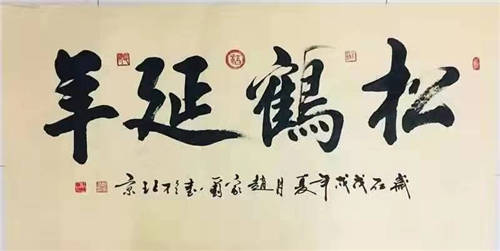 松鶴延年
歲在戊戌年夏月趙家爵書於北京